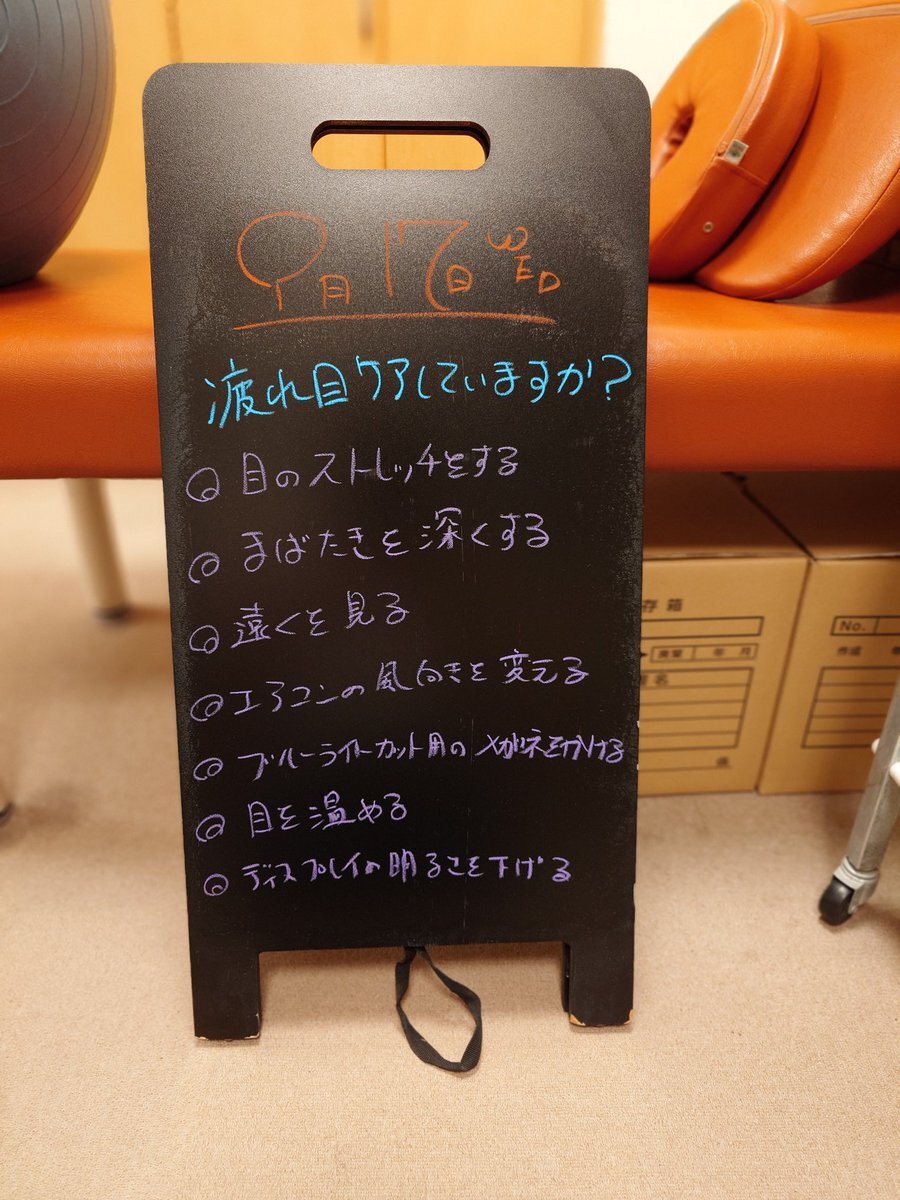 9月17日 WED
疲れ目ケアしていますか?
◎ 目のストレッチをする
◎ まばたきを深くする
◎ 遠くを見る
◎ エアコンの風向きを変える
◎ ブルーライトカット用のメガネをかける
◎ 目を温める
◎ ディスプレイの明るさを下げる
存箱
廃棄 年 月
名
No.
作成 年